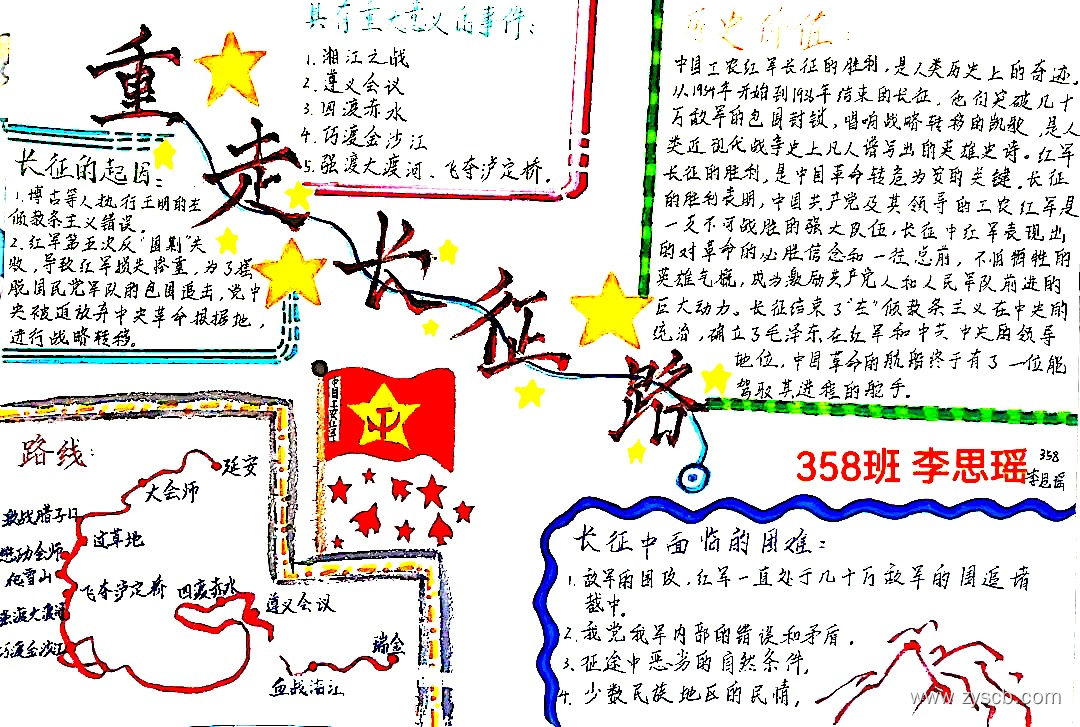 重走长征路
具有重大意义的事件：
1.湘江之战
2.遵义会议
3.四渡赤水
4.巧渡金沙江
5.强渡大渡河、飞夺泸定桥.
长征的起因：
1.博古等人执行王明的左
倾教条主义错误.
2.红军第五次反"围剿"失
败,导致红军损失惨重,为了摆
脱国民党军队的包围追击,党中
央被迫放弃中央革命根据地,
进行战略转移.
历史价值：
中国工农红军长征的胜利,是人类历史上的奇迹.
从1934年开始到1936年结束的长征,他们突破几十
万敌军的包围封锁,唱响战略转移的凯歌,是人
类近现代战争史上凡人谱写出的英雄史诗。红军
长征的胜利,是中国革命转危为安的关键.长征
的胜利表明,中国共产党及其领导的工农红军是
一支不可战胜的强大队伍,长征中红军表现出
的对革命的必胜信念和一往无前,不怕牺牲的
英雄气概,成为激励共产党人和人民军队前进的
巨大动力。长征结束了"左"倾教条主义在中央的
统治,确立了毛泽东在红军和中共中央的领导
地位,中国革命的航船终于有了一位能
驾驭其进程的舵手.
中国工农红军
358班 李思瑶
358
李思瑶
路线：
延安
大会师
激战腊子口
过草地
懋功会师
爬雪山
飞夺泸定桥
四渡赤水
强渡大渡河
遵义会议
巧渡金沙江
瑞金
血战湘江
长征中面临的困难：
1.敌军的围攻,红军一直处于几十万敌军的围追堵
截中.
2.我党我军内部的错误和矛盾.
3.征途中恶劣的自然条件,
4.少数民族地区的民情,
www.zyscb.com